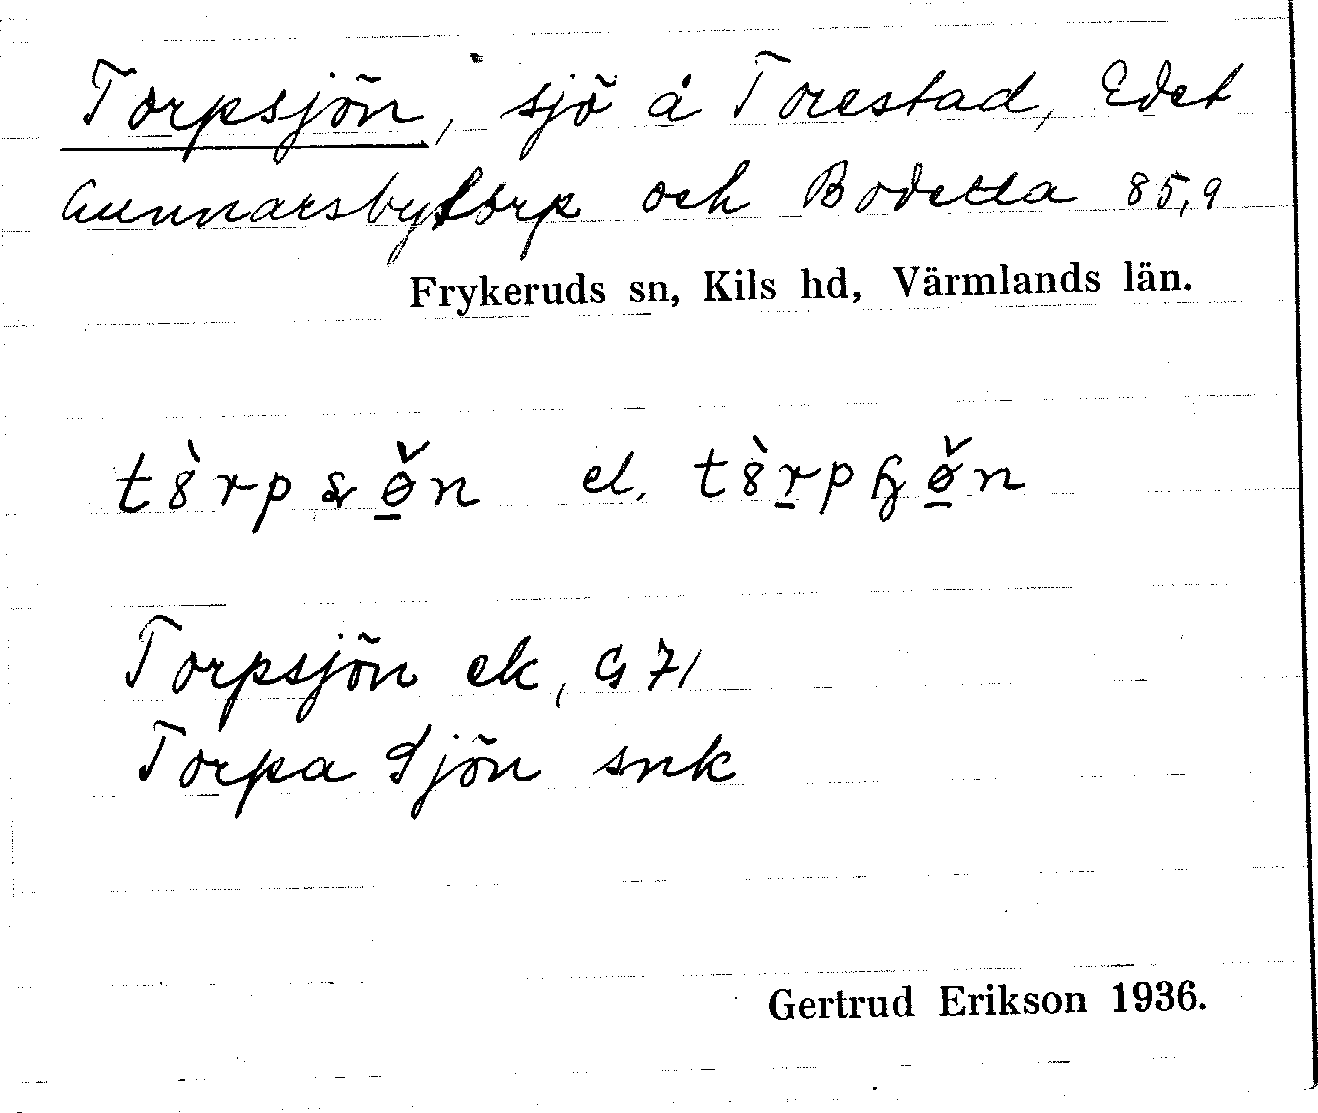 Torpsjön, sjö å Torestad, Edet
Gunnarsbytorp och Bodetta 85,9
Frykeruds sn, Kils hd, Värmlands län.
el.
Torpsjön ek, G 71
Torpa Sjön snk
Gertrud Erikson 1936.